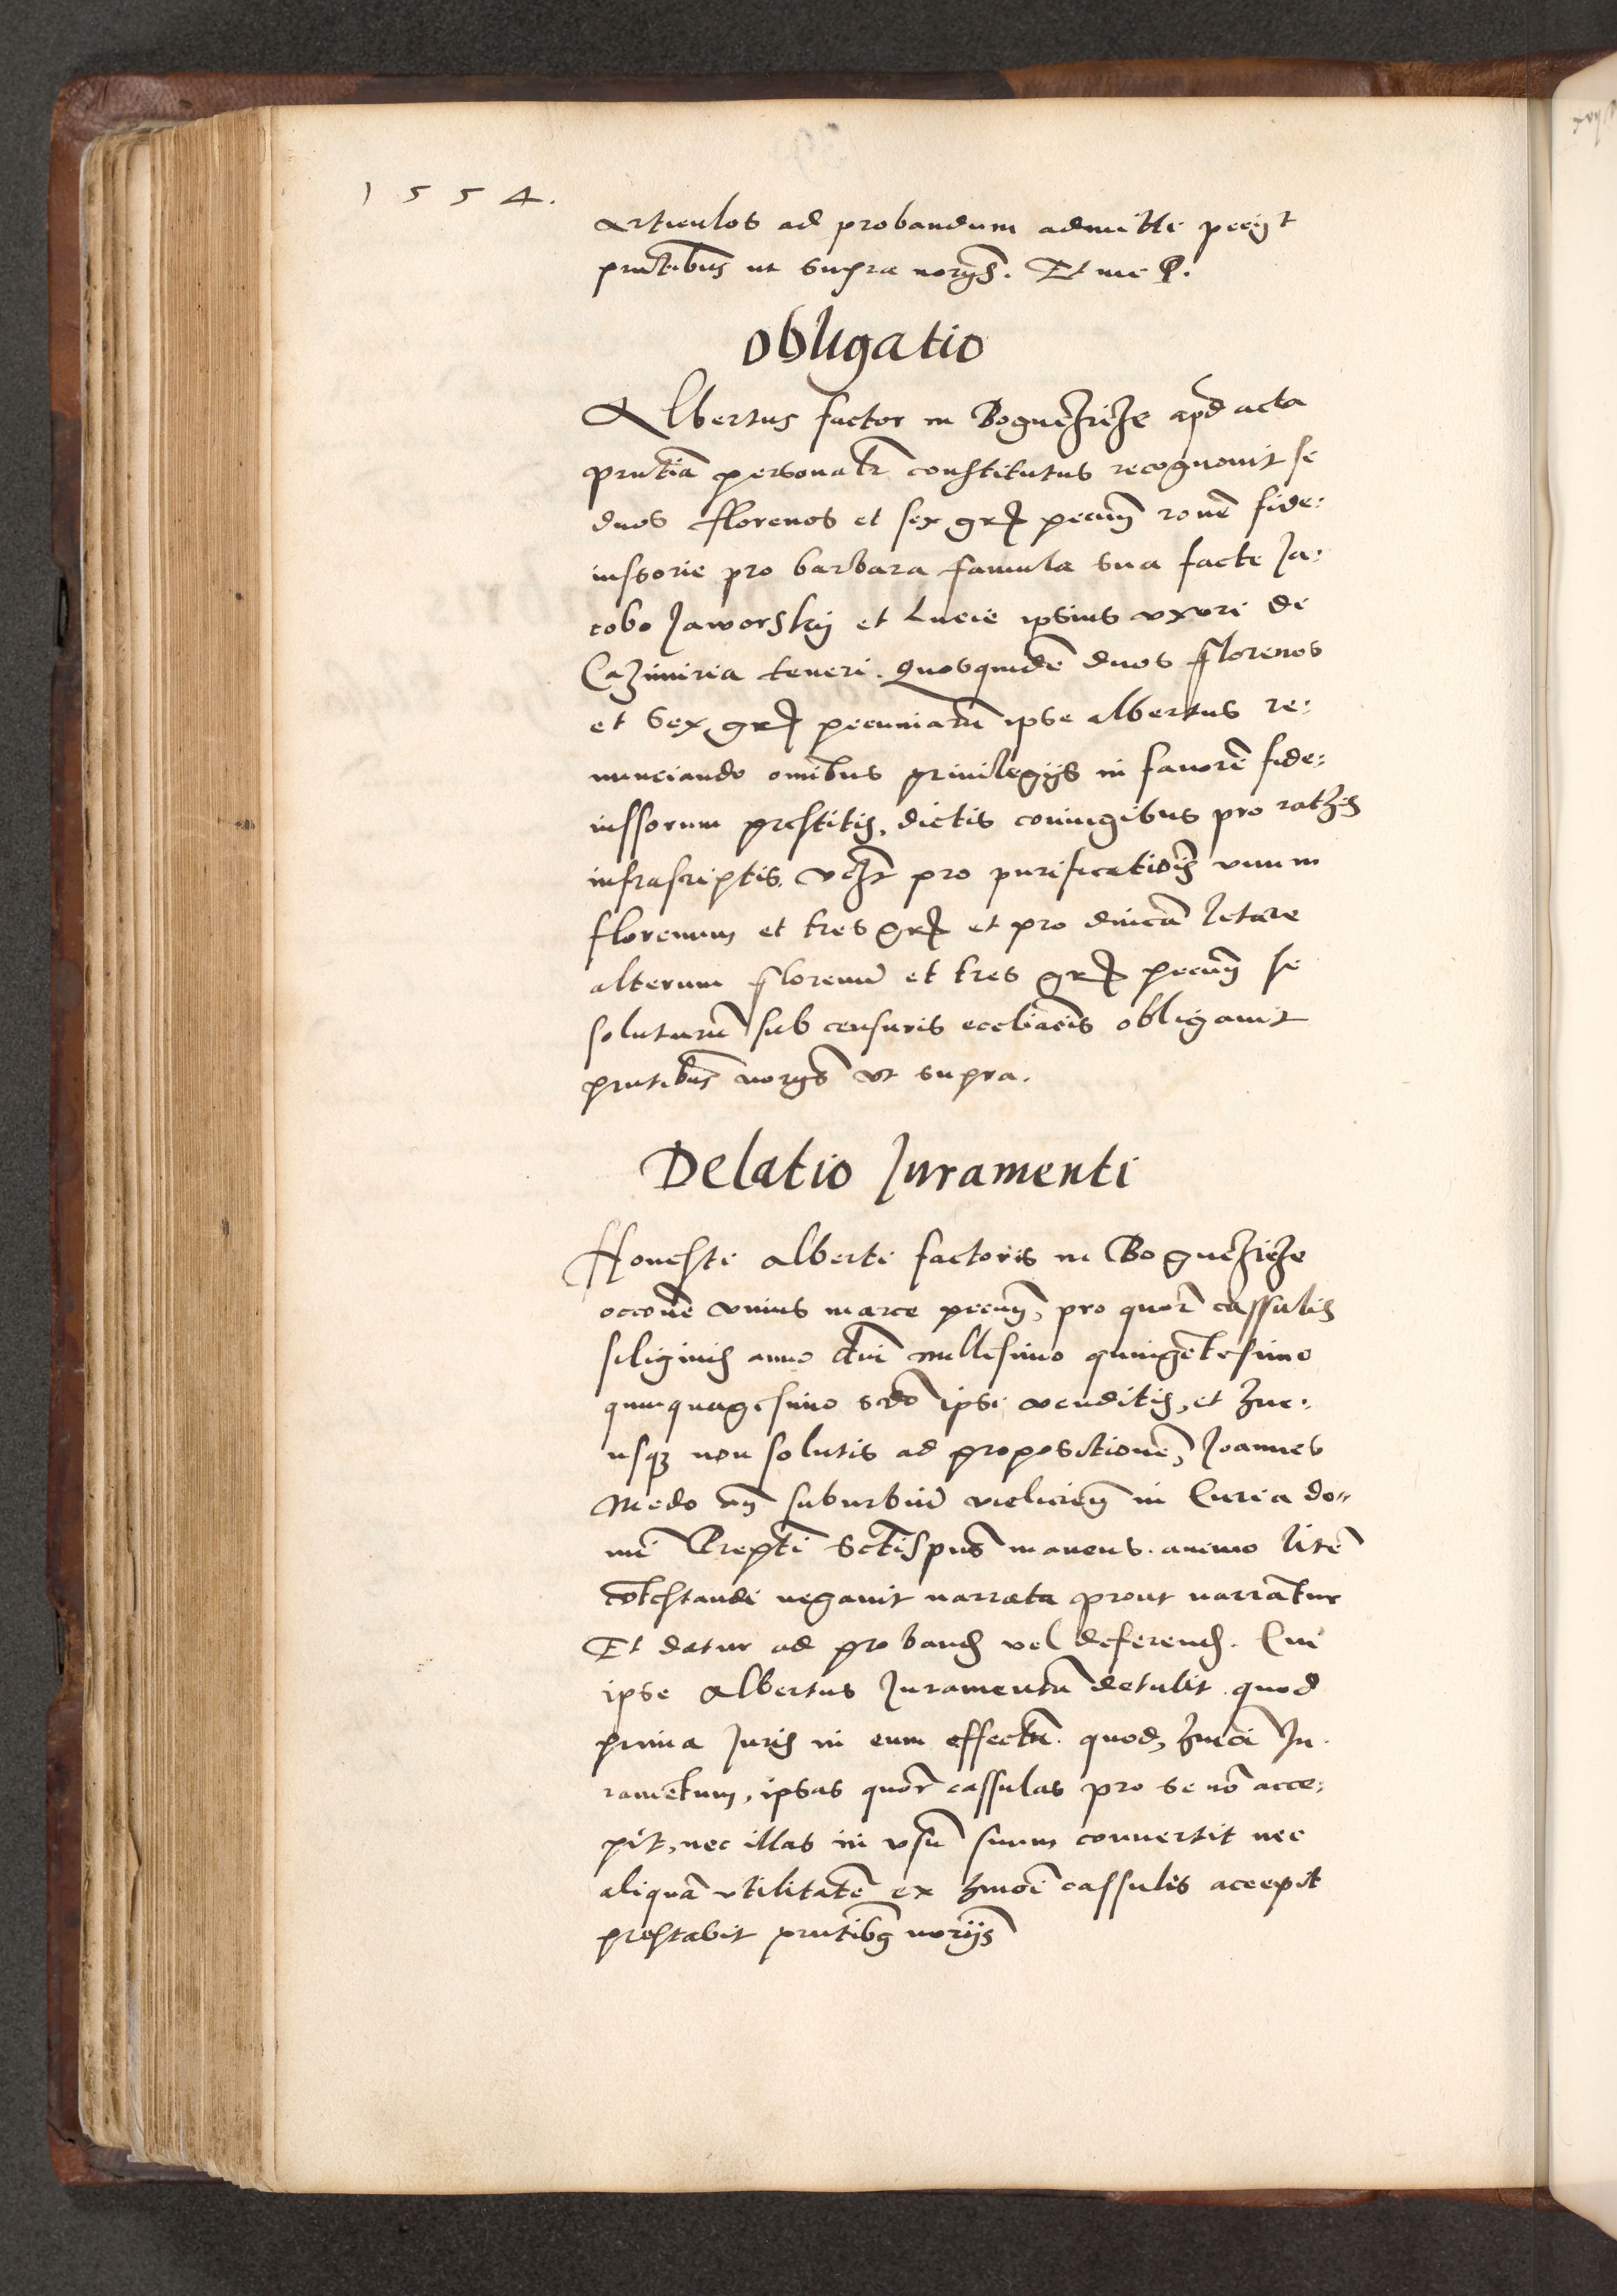 1 5 5 4.
articulos ad probandum admitti peciit
pntibus ut supra norijs. Et me P.
Obligatio
Albertus factor in Bogueziicze apd acta
pntia personalr constitutus recognouit se
duos florenos et sex grs pecun rone fide:
iussorie pro barbara famula sua facte Ja:
cobo Jaworskij et Lucie ipsius vxori de
Cazimiria teneri. Quosquide duos florenos
et sex grs pecuniaru ipse albertus re:
nunciando omibus priuilegijs in fauore fide:
iussorum prestitis, dictis coniugibus pro ratis
infrascriptis, vclt pro purificationis vnum
florenum et tres grs et pro dnica letare
alterum florenu et tres grs pecun se
soluturu sub censuris eccliacis obligauit
pntibus norijs vt supra.
Delatio Juramenti
Honesti alberti factoris in Bogueziicze
occone vnius marce pecun, pro quor cassulis
siliginis anno dni millesimo quingetesimo
quinquagesimo scdo ipsi venditis, et huc:
usq non solutis ad propositione, Joannes
Medo in suburbiu vielicien in Curia do„
mi manens. animo lite
cotestandi negauit narrata prout narratur
Et datur ad proband vel deferend. Cui
ipse Albertus Juramentu detulit quod
prima Juris in eum effectu. quod, hmoi Ju.
rametum, ipsas quor cassulas pro se no acce:
pit, nec illas in vsu suum conuertit nec
aliqua vtilitate ex hmoi cassulis accepit
prestabit pntibus norijs